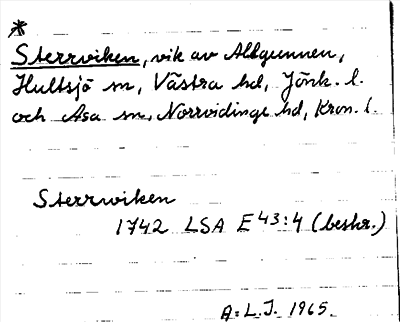 *
Sterrviken, vik av Allgunnen,
Hultsjö sn, Västra hd, Jönk. l.
och Asa sn, Norrvidinge hd, Kron. l.
Sterrwiken
1742 LSA E 43:4 (beskr.)
A:L.J. 1965.